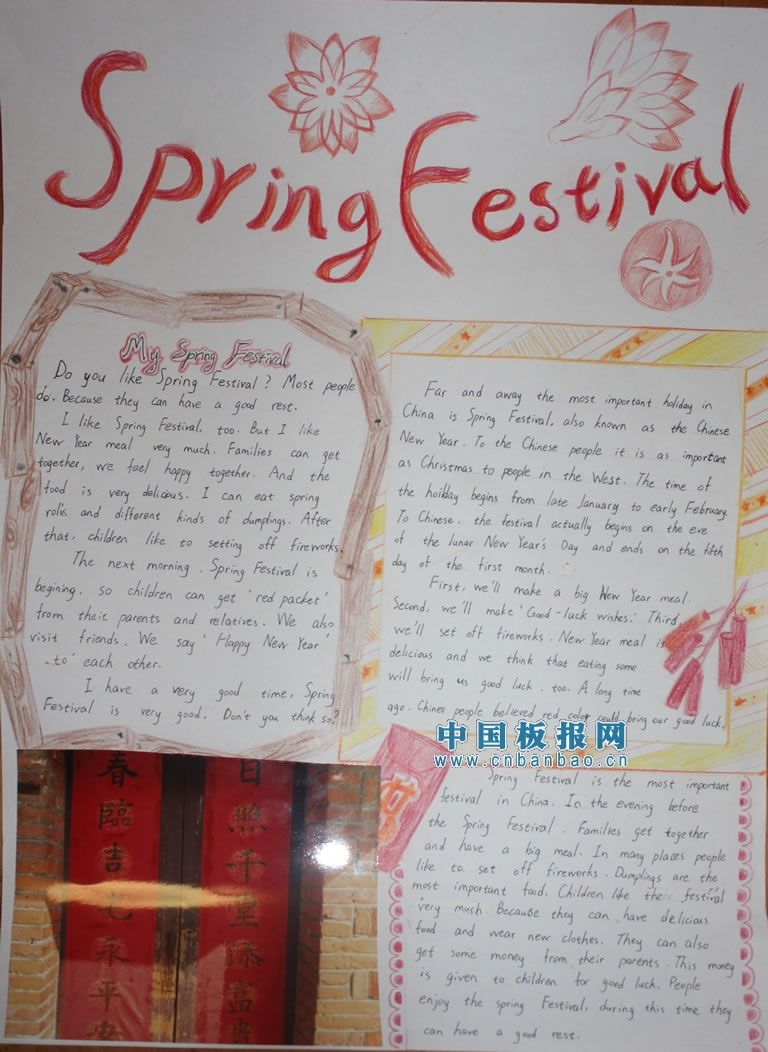 Spring Festival
My Spring Festival
Do you like Spring Festival? Most people
do. Because they can have a good rest.
I like Spring Festival. too. But I like
New Year meal very much. Families can get
together, we feel happy together. And the
food is very delicious. I can eat spring
rolls and different kinds of dumplings. After
that, children like to setting off fireworks.
The next morning. Spring Festival is
begining. so children can get 'red packet'
from their parents and relatives. We also
visit friends. We say 'Happy New Year'
to each other.
I have a very good time, Spring
Festival is very good. Don't you think so?
Far and away the most important holiday in
China is Spring Festival, also known as the Chinese
New Year. To the Chinese people it is as important
as Christmas to people in the West. The time of
the hoilday begins from late January to early February.
To Chinese. the festival actually begins on the eve
of the lunar New Year's Day and ends on the fifth
day of the first month.
First, we'll make a big New Year meal.
Second, we'll make 'Good-luck wishes.' Third,
we'll set off fireworks. New Year meal is
delicious and we think that eating some
will bring us good luck. too. A long time
ago. Chines people believed red color could bring our good luck.
中国板报网
www.cnbanbao.cn
Spring Festival is the most important
festival in China. In the evening before
the Spring Festival. Families get together
and have a big meal. In many places people
like to set off fireworks. Dumplings are the
most important food. Children like festival
very much. Because they can have delicious
food and wear new clothes. They can also
get some money from their parents. This money
is given to children for good luck. People
enjoy the spring Festival, during this time they
can have a good rest.
春臨吉宅永平安
日照華堂添富貴